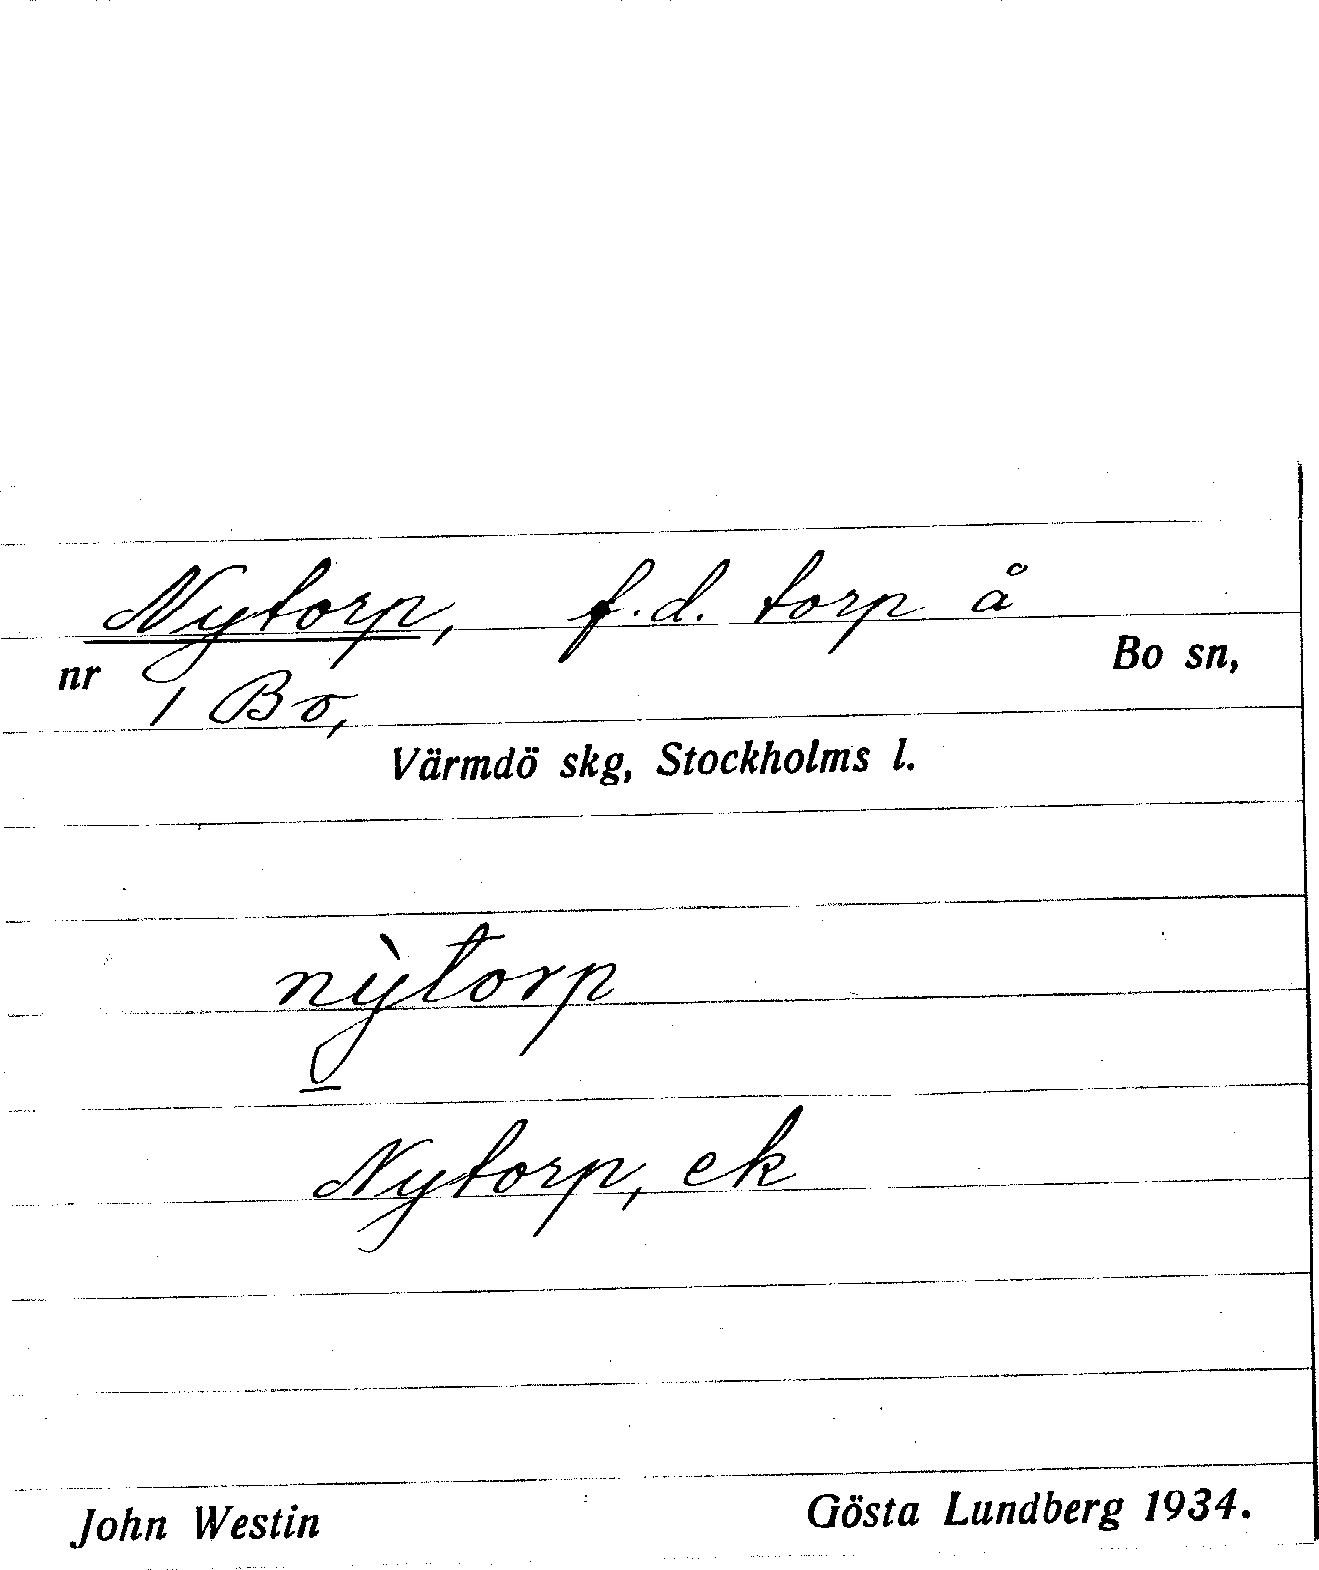 Nytorp, f.d. torp å
Bo sn,
nr 1 Bo,
Värmdö skg, Stockholms l.
nỳtorp
Nytorp, ek
John Westin Gösta Lundberg 1934.